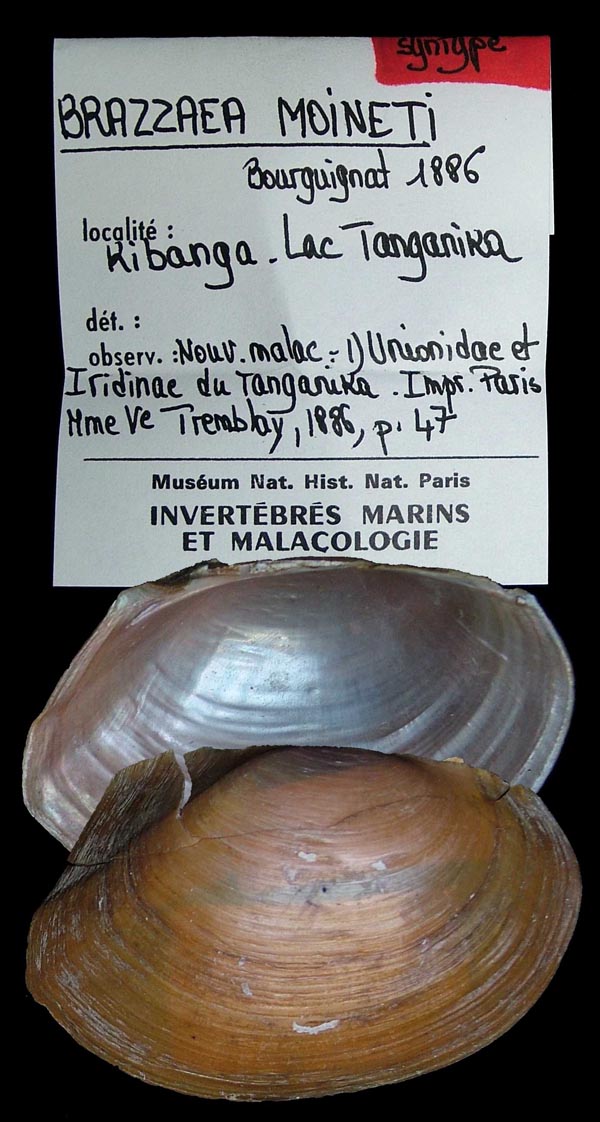 syntype
BRAZZAEA MOINETI
Bourguignat 1886
localité :
Kibanga. Lac Tanganika
dét. :
observ. : Nouv. malac. : 1) Unionidae et
Iridinae du Tanganika. Impr. Paris
Mme Ve Tremblay, 1886, p. 47
Muséum Nat. Hist. Nat. Paris
INVERTÉBRÉS MARINS
ET MALACOLOGIE